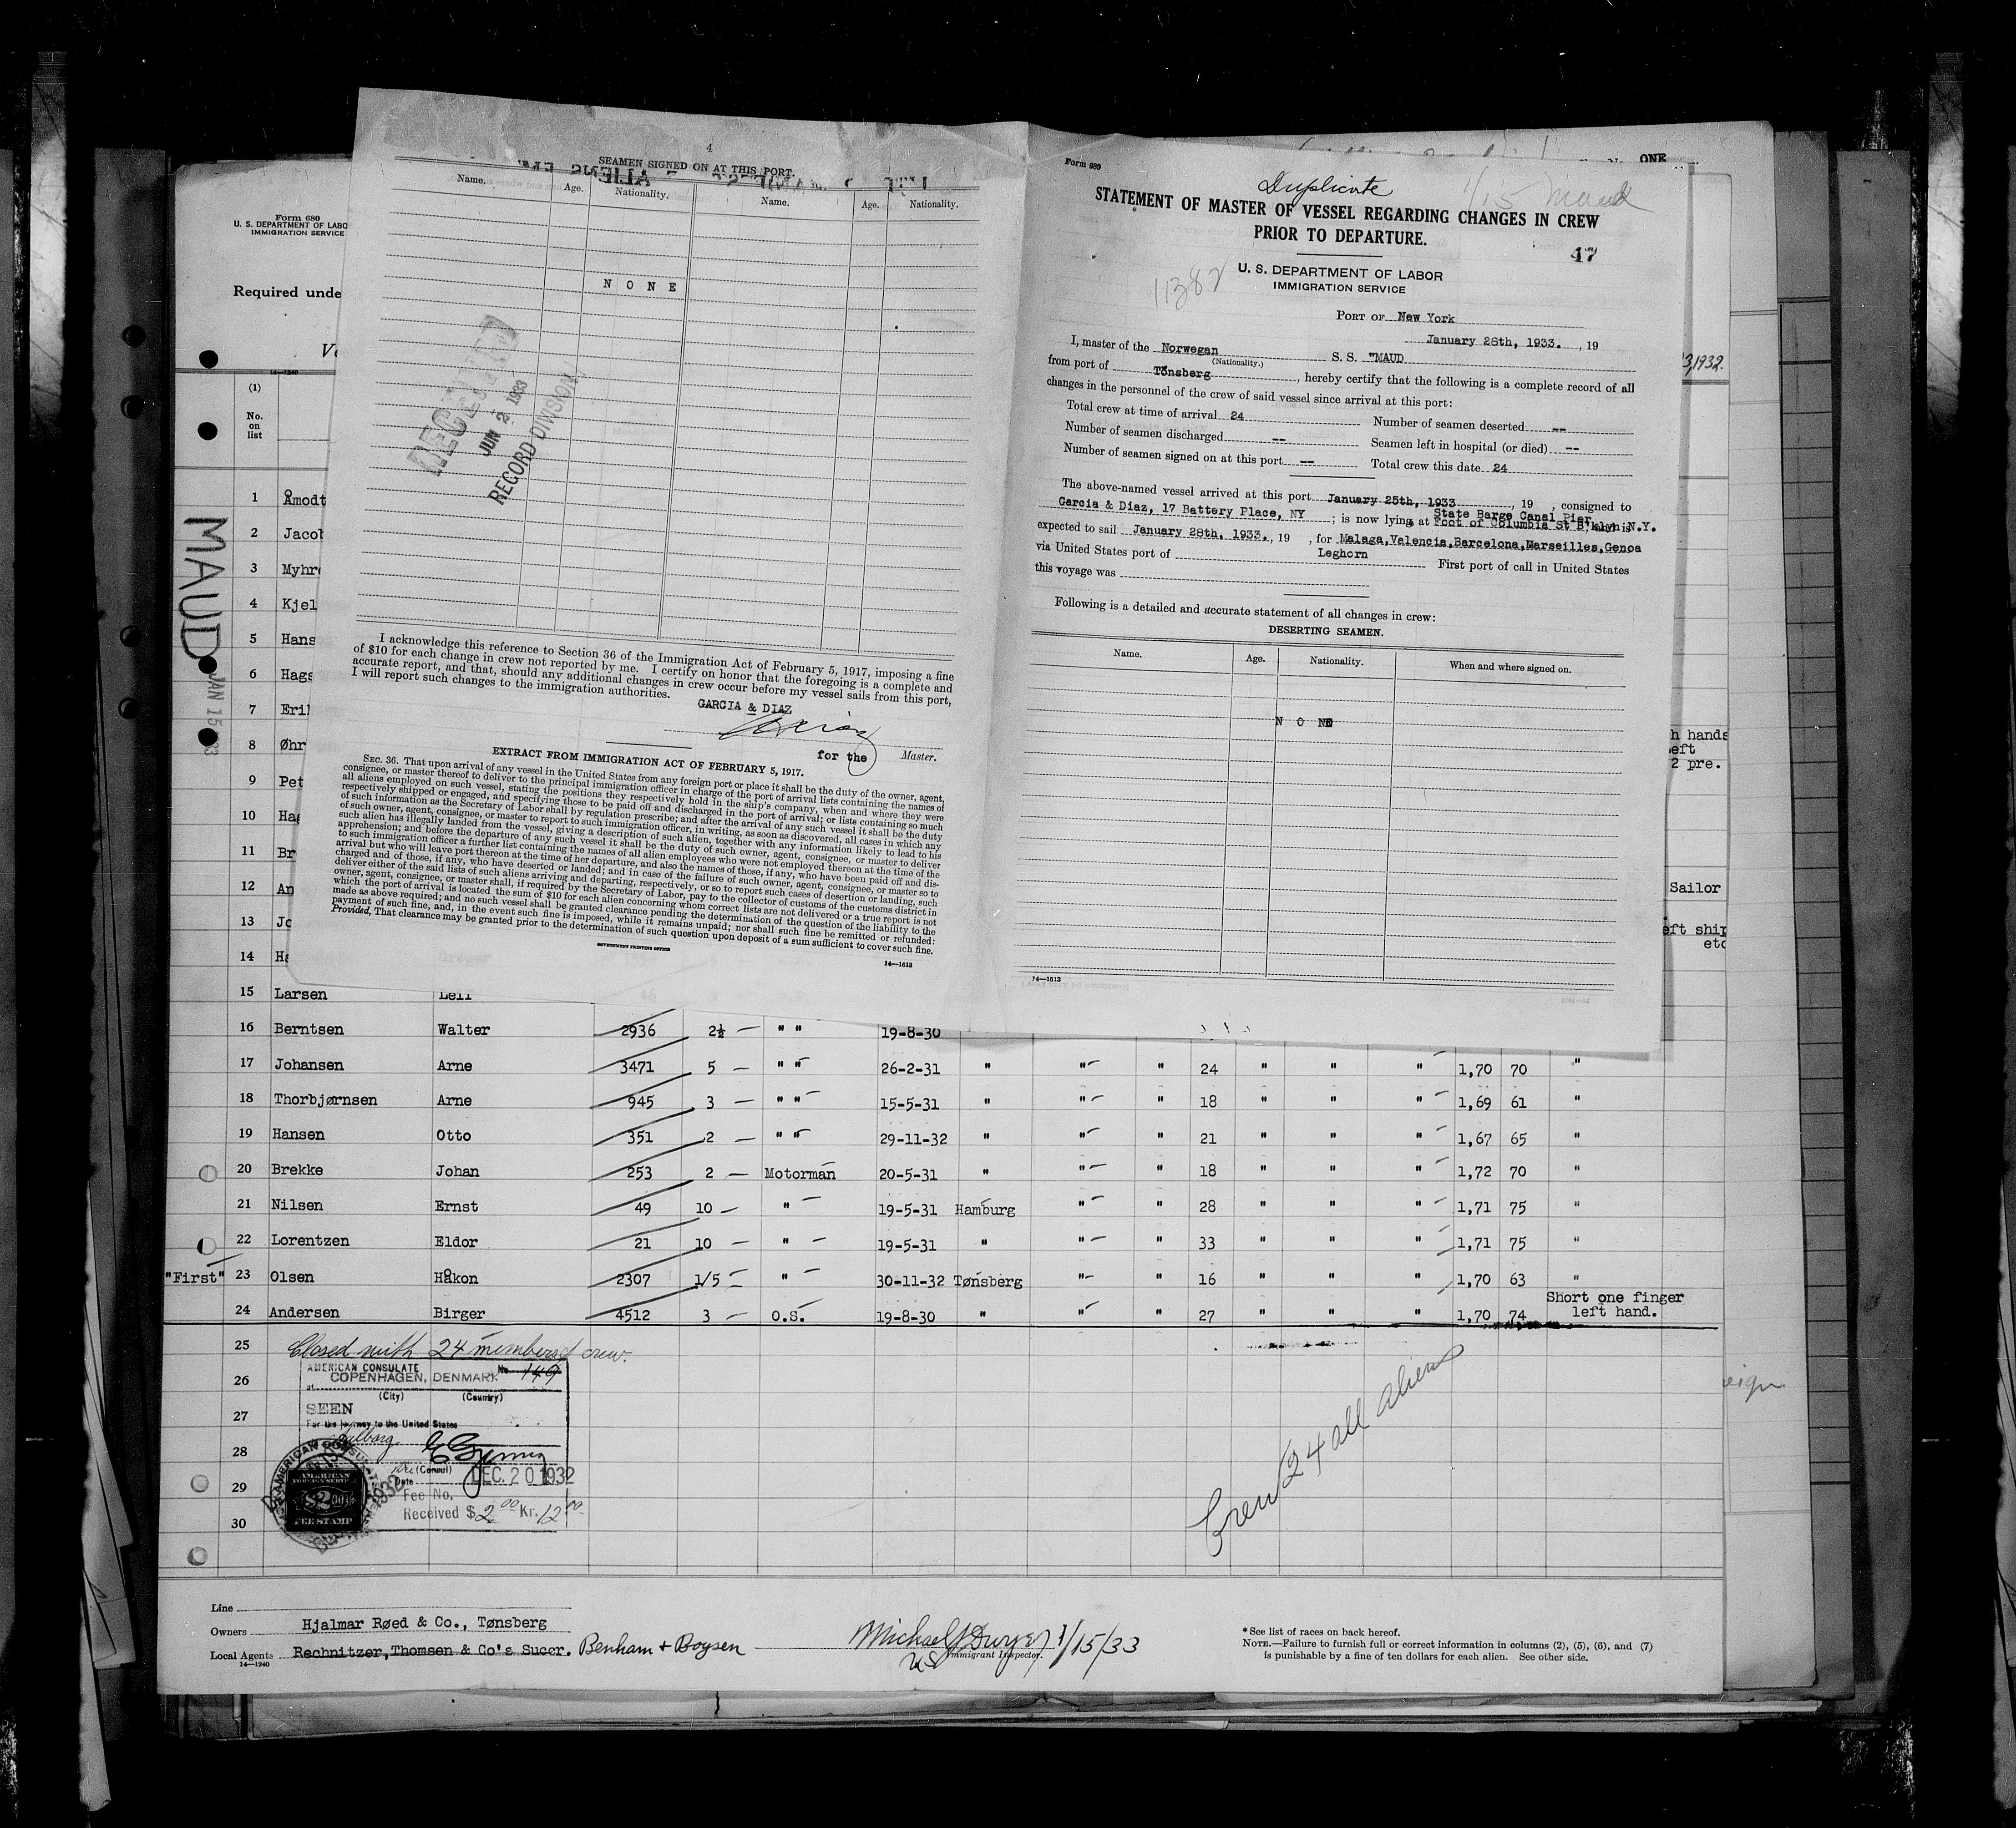 4
SEAMEN SIGNED ON AT THIS PORT.
Name. Age. Nationality. Name. Age. Nationality.
N O N E
RECEIVED
JUN 2 1933
RECORD DIVISION
I acknowledge this reference to Section 36 of the Immigration Act of February 5, 1917, imposing a fine
of $10 for each change in crew not reported by me. I certify on honor that the foregoing is a complete and
accurate report, and that, should any additional changes in crew occur before my vessel sails from this port,
I will report such changes to the immigration authorities.
GARCIA & DIAZ
for the Master.
EXTRACT FROM IMMIGRATION ACT OF FEBRUARY 5, 1917.
SEC. 36. That upon arrival of any vessel in the United States from any foreign port or place it shall be the duty of the owner, agent,
consignee, or master thereof to deliver to the principal immigration officer in charge of the port of arrival lists containing the names of
all aliens employed on such vessel, stating the positions they respectively hold in the ship's company, when and where they were
respectively shipped or engaged, and specifying those to be paid off and discharged in the port of arrival; or lists containing so much
of such information as the Secretary of Labor shall by regulation prescribe; and after the arrival of any such vessel it shall be the duty
of such owner, agent, consignee, or master to report to such immigration officer, in writing, as soon as discovered, all cases in which any
such alien has illegally landed from the vessel, giving a description of such alien, together with any information likely to lead to his
apprehension; and before the departure of any such vessel it shall be the duty of such owner, agent, consignee, or master to deliver
to such immigration officer a further list containing the names of all alien employees who were not employed thereon at the time of the
arrival but who will leave port thereon at the time of her departure, and also the names of those, if any, who have been paid off and dis-
charged and of those, if any, who have deserted or landed; and in case of the failure of such owner, agent, consignee, or master so to
deliver either of the said lists of such aliens arriving and departing, respectively, or so to report such cases of desertion or landing, such
owner, agent, consignee, or master shall, if required by the Secretary of Labor, pay to the collector of customs of the customs district in
which the port of arrival is located the sum of $10 for each alien concerning whom correct lists are not delivered or a true report is not
made as above required; and no such vessel shall be granted clearance pending the determination of the question of the liability to the
payment of such fine, and, in the event such fine is imposed, while it remains unpaid; nor shall such fine be remitted or refunded:
Provided, That clearance may be granted prior to the determination of such question upon deposit of a sum sufficient to cover such fine.
GOVERNMENT PRINTING OFFICE
14—1613
Form 689
Duplicate
1/15 Maud
STATEMENT OF MASTER OF VESSEL REGARDING CHANGES IN CREW
PRIOR TO DEPARTURE.
47
11382
U. S. DEPARTMENT OF LABOR
IMMIGRATION SERVICE
PORT OF New York
January 28th, 1933. , 19
I, master of the Norwegian S. S. "MAUD
(Nationality.)
from port of Tönsberg , hereby certify that the following is a complete record of all
changes in the personnel of the crew of said vessel since arrival at this port:
Total crew at time of arrival 24 Number of seamen deserted --
Number of seamen discharged -- Seamen left in hospital (or died) --
Number of seamen signed on at this port -- Total crew this date 24
The above-named vessel arrived at this port January 25th, 1933 , 19 , consigned to
Garcia & Diaz, 17 Battery Place, NY ; is now lying at State Barge Canal Pier
Foot of Columbia St B'klyn N.Y.
expected to sail January 28th, 1933. , 19 , for Malaga,Valencia,Barcelona,Marseilles,Genoa
Leghorn
via United States port of First port of call in United States
this voyage was
Following is a detailed and accurate statement of all changes in crew:
DESERTING SEAMEN.
Name. Age. Nationality. When and where signed on.
N O NE
14—1613
ONE
3,1932.
Form 680
U. S. DEPARTMENT OF LABO
IMMIGRATION SERVICE
Required unde
14—1240
(1)
No.
on
list
MAUD
JAN 15
1 Åmodt
2 Jacob
3 Myhr
4 Kjel
5 Hans
6 Hags
7 Eril
8 Øhr
9 Pet
10 Hag
11 Br
12 An
13 Jo
14 Ha
h hands
eft
2 pre.
Sailor
eft ship
etc
15 Larsen Leif
16 Berntsen Walter 2936 2½ — " " 19-8-30
17 Johansen Arne 3471 5 — " " 26-2-31 " " " 24 " " " 1,70 70 "
18 Thorbjørnsen Arne 945 3 — " " 15-5-31 " " " 18 " " " 1,69 61 "
19 Hansen Otto 351 2 — " " 29-11-32 " " " 21 " " " 1,67 65 "
20 Brekke Johan 253 2 — Motorman 20-5-31 " " " 18 " " " 1,72 70 "
21 Nilsen Ernst 49 10 — " 19-5-31 Hamburg " " 28 " " " 1,71 75 "
22 Lorentzen Eldor 21 10 — " 19-5-31 " " " 33 " " " 1,71 75 "
"First" 23 Olsen Håkon 2307 1/5 — " 30-11-32 Tønsberg " " 16 " " " 1,70 63 "
24 Andersen Birger 4512 3 — O.S. 19-8-30 " " " 27 " " " 1,70 74 Short one finger
left hand.
25 Closed with 24 members of crew.
26
27
28
29
30
AMERICAN CONSULATE No. 149
at COPENHAGEN, DENMARK
(City) (Country)
SEEN
For the journey to the United States
(Consul)
Date DEC. 20 1932
Fee No.
Received $ 2 00 Kr. 12 00
AMERICAN
FOREIGN SERVICE
$2.00
FEE STAMP
Crew 24 all aliens
eign
Line
Owners Hjalmar Røed & Co., Tønsberg
Local Agents Rechnitzer,Thomsen & Co's Succr. Benham & Boysen
14—1240
Michael J Dwyer 1/15/33
US Immigrant Inspector.
* See list of races on back hereof.
NOTE.—Failure to furnish full or correct information in columns (2), (5), (6), and (7)
is punishable by a fine of ten dollars for each alien. See other side.